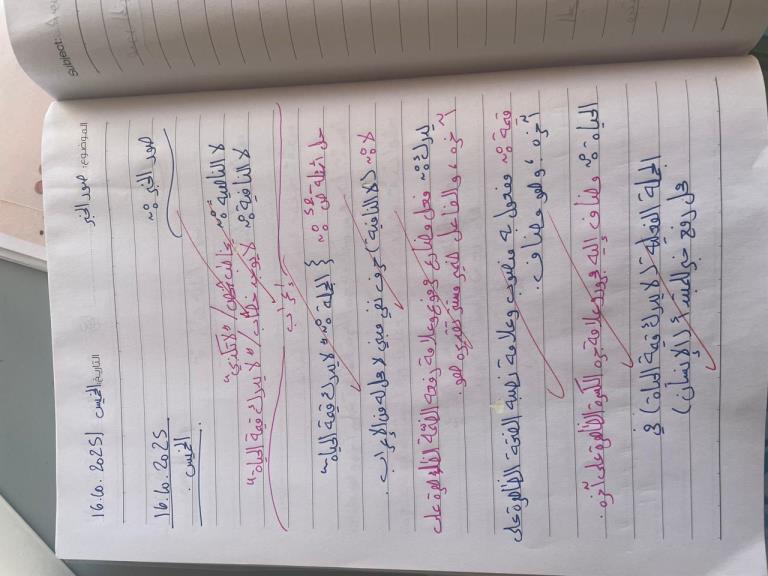 Subject:
الموضوع: صور الخبر
التاريخ: الخميس 16.10.2025
صور الخبر:
16.10.2025
الخميس.
لا الناهية: جازمة / "لا تكذبي"
لا النافية: لا يوجد / "لا يدرك قيمة الحياة"
إعراب
حل أمثلة ص 58: { الجملة: "لا يدرك قيمة الحياة"
لا: (لا النافية) حرف نفي مبني لا محل له من الإعراب.
يدرك: فعل مضارع مرفوع وعلامة رفعه الضمة الظاهرة على
آخره، والفاعل ضمير مستتر تقديره هو
قيمة: مفعول به منصوب وعلامة نصبه الفتحة الظاهرة على
آخره، وهو مضاف.
الحياة: مضاف إليه مجرور وعلامة جره الكسرة الظاهرة على آخره.
الجملة الفعلية (لا يدرك قيمة الحياة) في
محل رفع خبر المبتدأ (الإنسان)